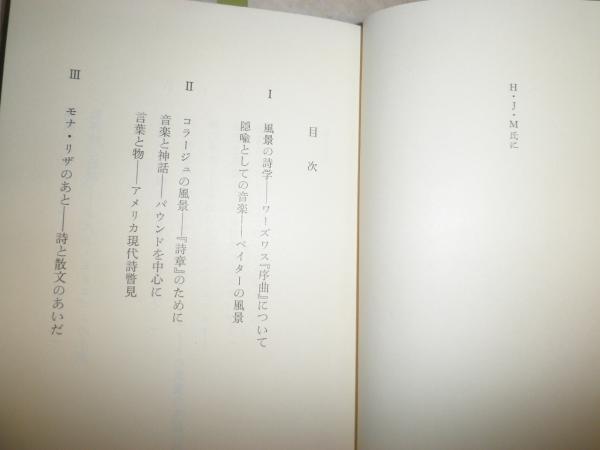 H・J・M氏に
目次
I
風景の詩学――ワーズワス『序曲』について
隠喩としての音楽――ペイターの風景
II
コラージュの風景――『詩章』のために
音楽と神話――パウンドを中心に
言葉と物――アメリカ現代詩瞥見
III
モナ・リザのあと――詩と散文のあいだ